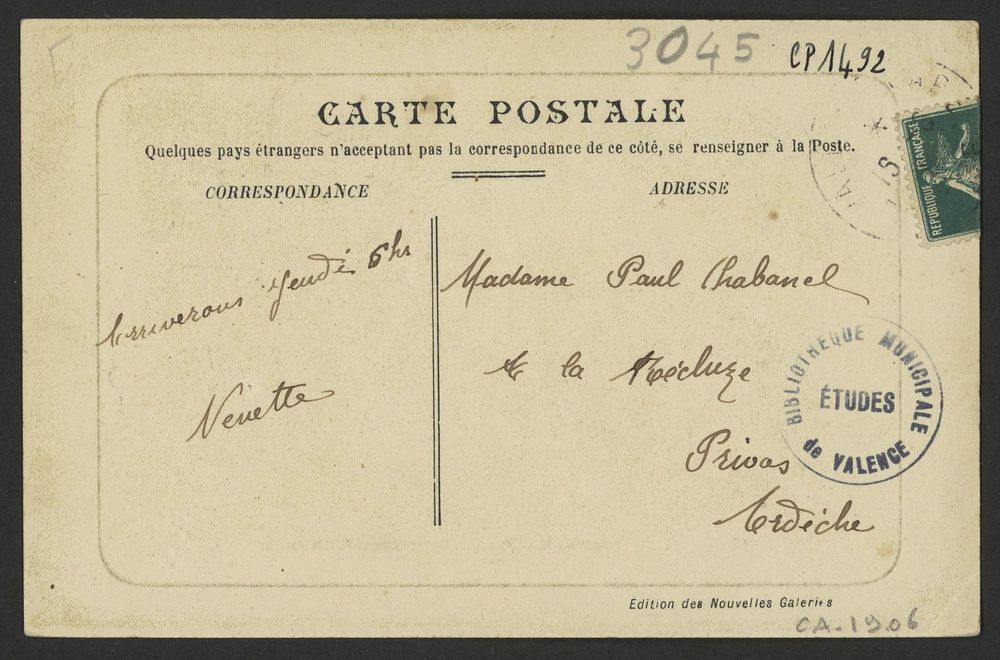 3045 CP1492
CARTE POSTALE
Quelques pays étrangers n'acceptent pas la correspondance de ce côté, se renseigner à la Poste.
CORRESPONDANCE
ADRESSE
REPUBLIQUE FRANÇAISE
Arriverons Jeudi 6hs
Nenette
Madame Paul Chabanel
A la Récluze
Privas
Ardèche
BIBLIOTHEQUE MUNICIPALE
ÉTUDES
de VALENCE
Édition des Nouvelles Galeries
CA-1906